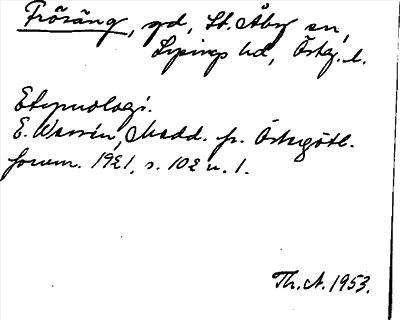 Frösäng, gd, St. Åby sn,
Lysings hd, Östg. l.
Etymologi.
E. Wassén, Medd. fr. Östergötl.
fornm. 1921, s. 102 n. 1.
Th. A. 1953.